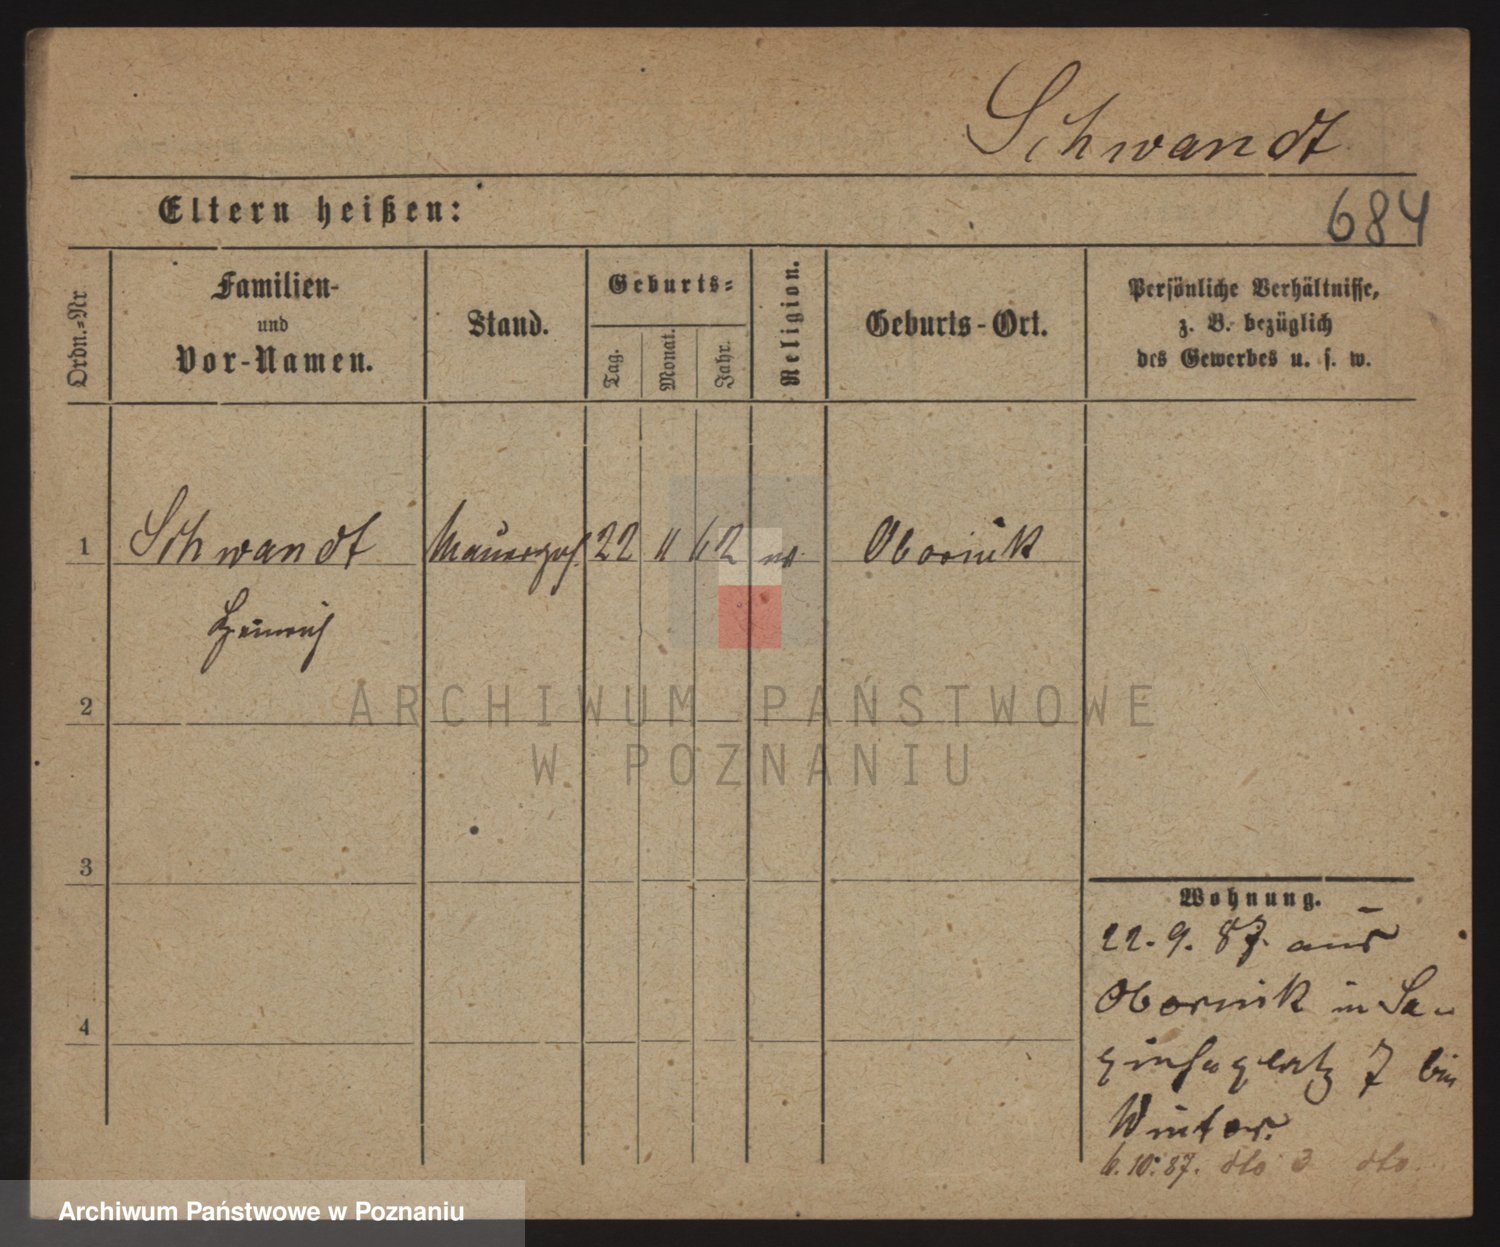 Schwandt
Eltern heißen:
684
Ordn.=Nr.
Familien-
und
Vor-Namen.
Stand.
Geburts=
Tag.
Monat.
Jahr.
Religion.
Geburts-Ort.
Persönliche Verhältnisse,
z. B. bezüglich
des Gewerbes u. s. w.
1 Schwandt Mauerges. 22 11 62 ev. Obornik
Heinrich
2
ARCHIWUM PAŃSTWOWE
W POZNANIU
3
4
Wohnung.
22. 9. 87. aus
Obornik in Sa-
7 bei
Winter.
6. 10. 87. dto 3 dto.
Archiwum Państwowe w Poznaniu